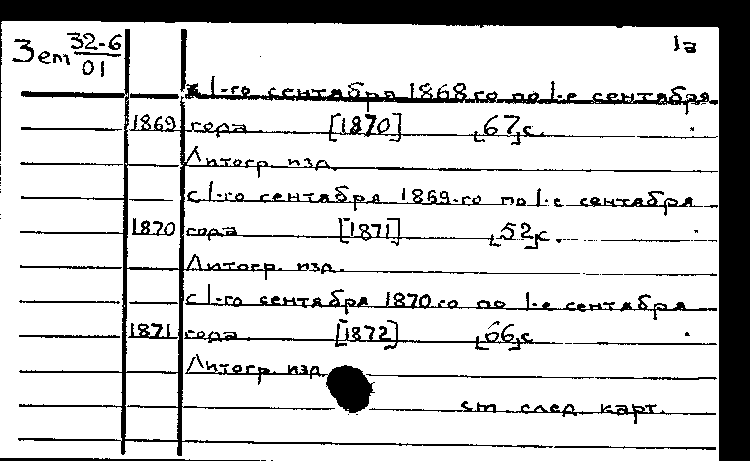 Зем 32-6 1а
01
с 1-го сентября 1868 го по 1-е сентября
1869 года. [1870] 67 с.
Литогр. изд.
с 1-го сентября 1869-го по 1-е сентября
1870 года [1871] 52 с.
Литогр. изд.
с 1-го сентября 1870 го по 1-е сентября
1871 года. [1872] 66 с
Литогр. изд
см. след. карт.